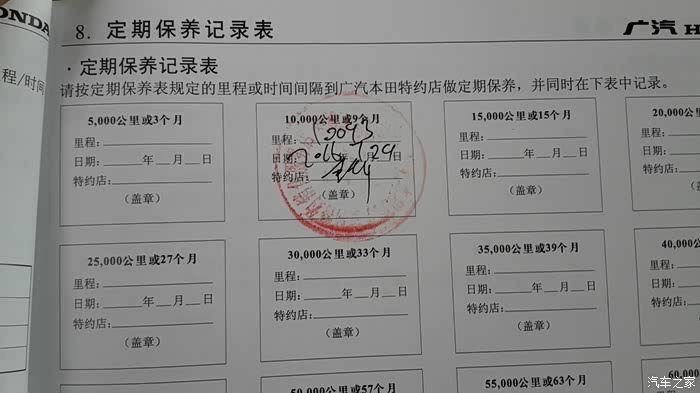 ONDA
程/时间
8. 定期保养记录表
广汽 H
·定期保养记录表
请按定期保养表规定的里程或时间间隔到广汽本田特约店做定期保养，并同时在下表中记录。
5,000公里或3个月
里程：
日期：年月日
特约店：
（盖章）
10,000公里或9个月
里程：12093
日期：2016年7月29日
特约店：
（盖章）
15,000公里或15个月
里程：
日期：年月日
特约店：
（盖章）
20,000公
里程：
日期：
特约店：
25,000公里或27个月
里程：
日期：年月日
特约店：
（盖章）
30,000公里或33个月
里程：
日期：年月日
特约店：
（盖章）
35,000公里或39个月
里程：
日期：年月日
特约店：
（盖章）
40,000
里程：
日期：
特约店：
50,000公里或57个月
55,000公里或63个月
60,000
汽车之家